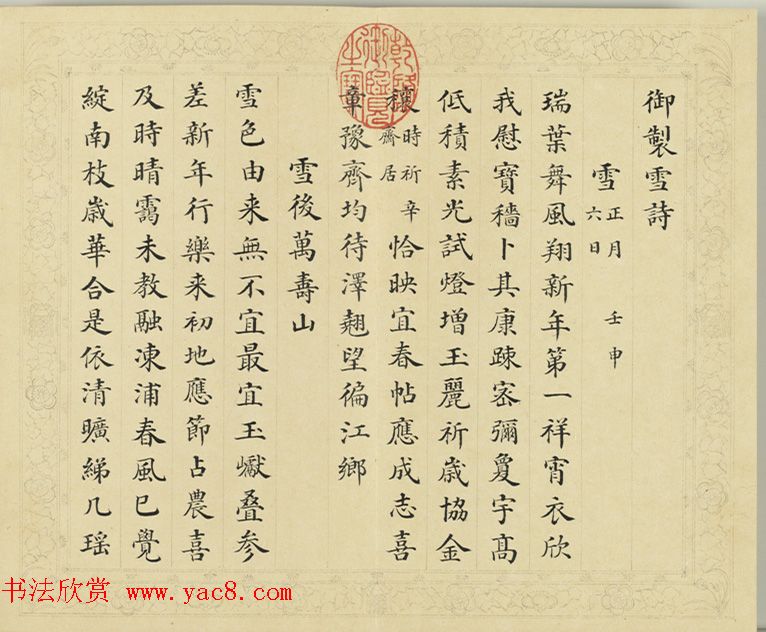 御製雪詩
雪 正月六日 壬申
瑞葉舞風翔新年第一祥宵衣欣
我慰寶穡卜其康踈宻彌夐宇髙
低積素光試燈增玉麗祈歲協金
穰時祈辛齋居恰映宜春帖應成志喜
章豫齊均待澤翹望徧江鄉
雪後萬壽山
雪色由来無不宜最宜玉巘叠参
差新年行樂来初地應節占農喜
及時晴靄未教融凍浦春風已覺
綻南枝歲華合是依清曠綈几瑶
乾隆御覽之寶
书法欣赏 www.yac8.com